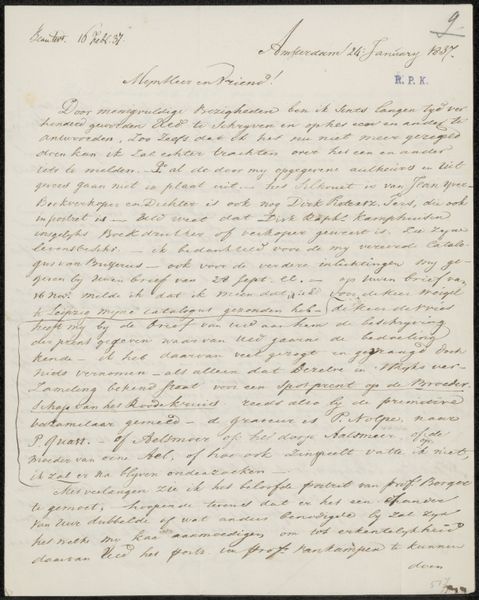 9
Beantw. 16 Febr. 37
Amsterdam 24 January 1837.
Mijn Heer en Vriend!
R. P. K.
Door menigvuldige Bezigheden ben ik sints langen tyd ver
hinderd geworden UEd te schryven en op het een en ander te
antwoorden,
doen kan ik zal echter trachten over het een en ander
iets te melden.
het Silhouet is van Jan
Boekverkoper en Dichter is ook nog Dirk Pietersz. Pers, die ook
in portret is — UEd weet dat Dirk Raphl. Kamphuisen
insgelyks Boekdrukker of verkoper geweest is. Zie zyne
levensbeschr. — ik bedank UEd voor de my vereerd Catalo
gus van — ook voor de verdere inlichtingen my ge
geven by uwen brief van 28 Sept. ll. — op uwen brief van
16 Nov. melde ik dat ik meen dat de Heer Weigel
te Leipzig mijne catalogus gezonden heb — de Heer de Vries
heeft my by de brief van UEd aan hem de beschryving
der prent gegeven waar van UEd gaarne de bedoeling
kende — ik heb daarvan veel gezegt en gevraagd doch
niets vernomen — als alleen dat dezelve in
zameling bekend staat voor een spotprent op de Broeder
schap van het Roode Kruis reeds also by de premetive
verzamelaar gemeld — de graveur is P. Nolpe, naar
P. Quast. — of Aalsmoer of het dorp Aalsmeer, of de
moeder van eene Aal, of hoe ook Zinspeelt vatte ik niet,
ik zal er na blyven onderzoeken —
Met verlangen zie ik het beloofde portret van Prof. Borger
te gemoet, — hoopende tevens dat er het een of ander
van uwe dubbelde of wat anders benodigd by zal zyn
het welk my kan aanmoedigen om tot erkentelykheid
daarvan UEd het portr. van Prof. van Kampen te kunnen
doen